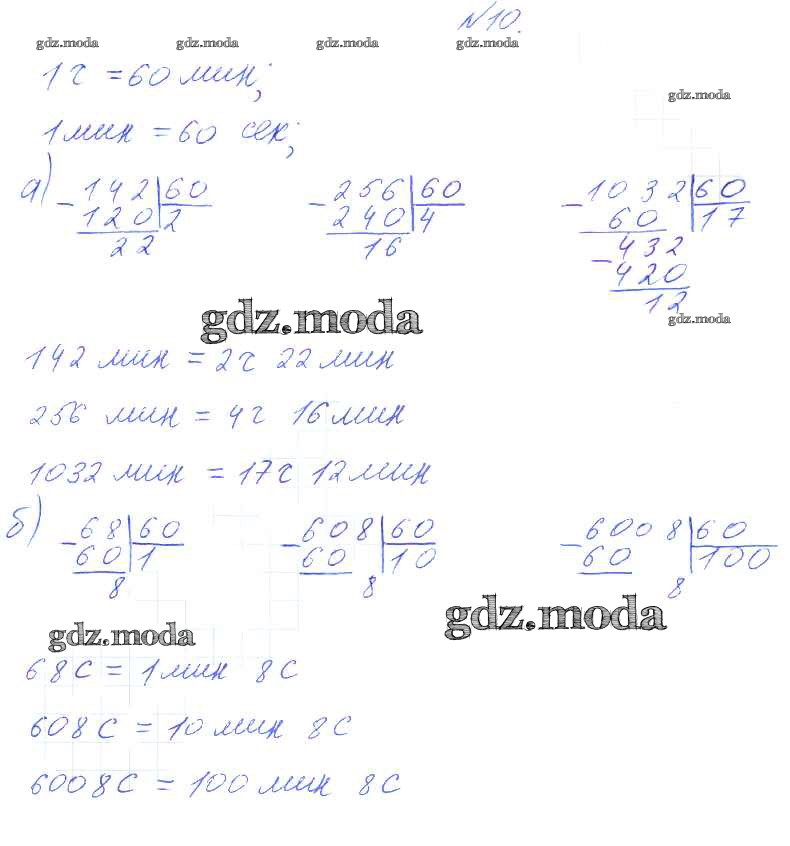 №10.
gdz.moda gdz.moda gdz.moda gdz.moda
1 ч = 60 мин;
gdz.moda
1 мин = 60 сек;
а) - 142 | 60 - 256 | 60 - 1032 | 60
120 | 2 240 | 4 60 | 17
22 16 - 432
420
12
gdz.moda gdz.moda
142 мин = 2 ч 22 мин
256 мин = 4 ч 16 мин
1032 мин = 17 ч 12 мин
б) - 68 | 60 - 608 | 60 - 6008 | 60
60 | 1 60 | 10 60 | 100
8 8 8
gdz.moda gdz.moda
68 С = 1 мин 8 С
608 С = 10 мин 8 С
6008 С = 100 мин 8 С